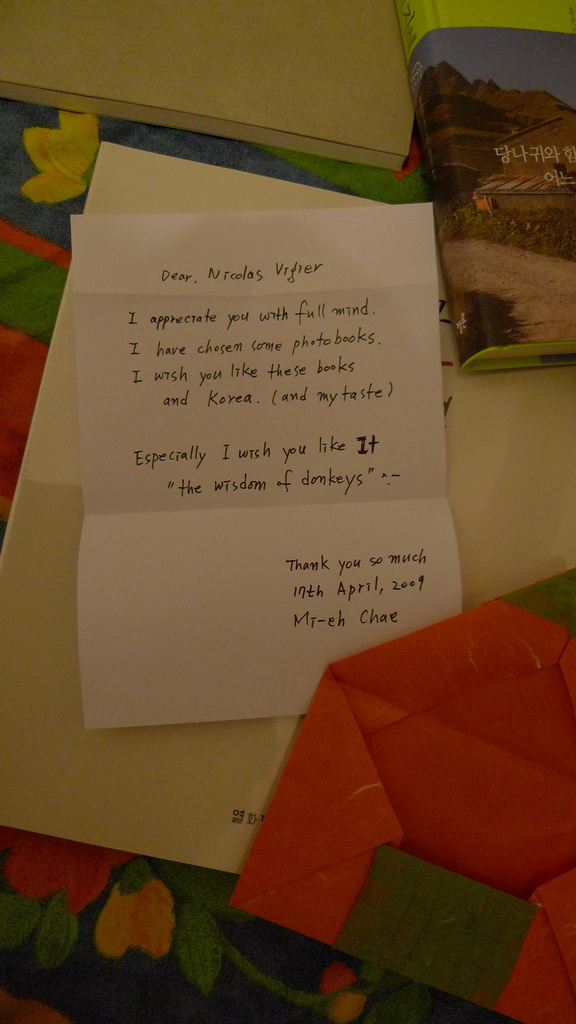 당나귀와 함
어느
Dear. Nicolas Vigier
I appreciate you with full mind.
I have chosen some photobooks.
I wish you like these books
and Korea. (and my taste)
Especially I wish you like It
"the wisdom of donkeys" ^.~
Thank you so much
17th April, 2009
Mi-eh Chae
열화